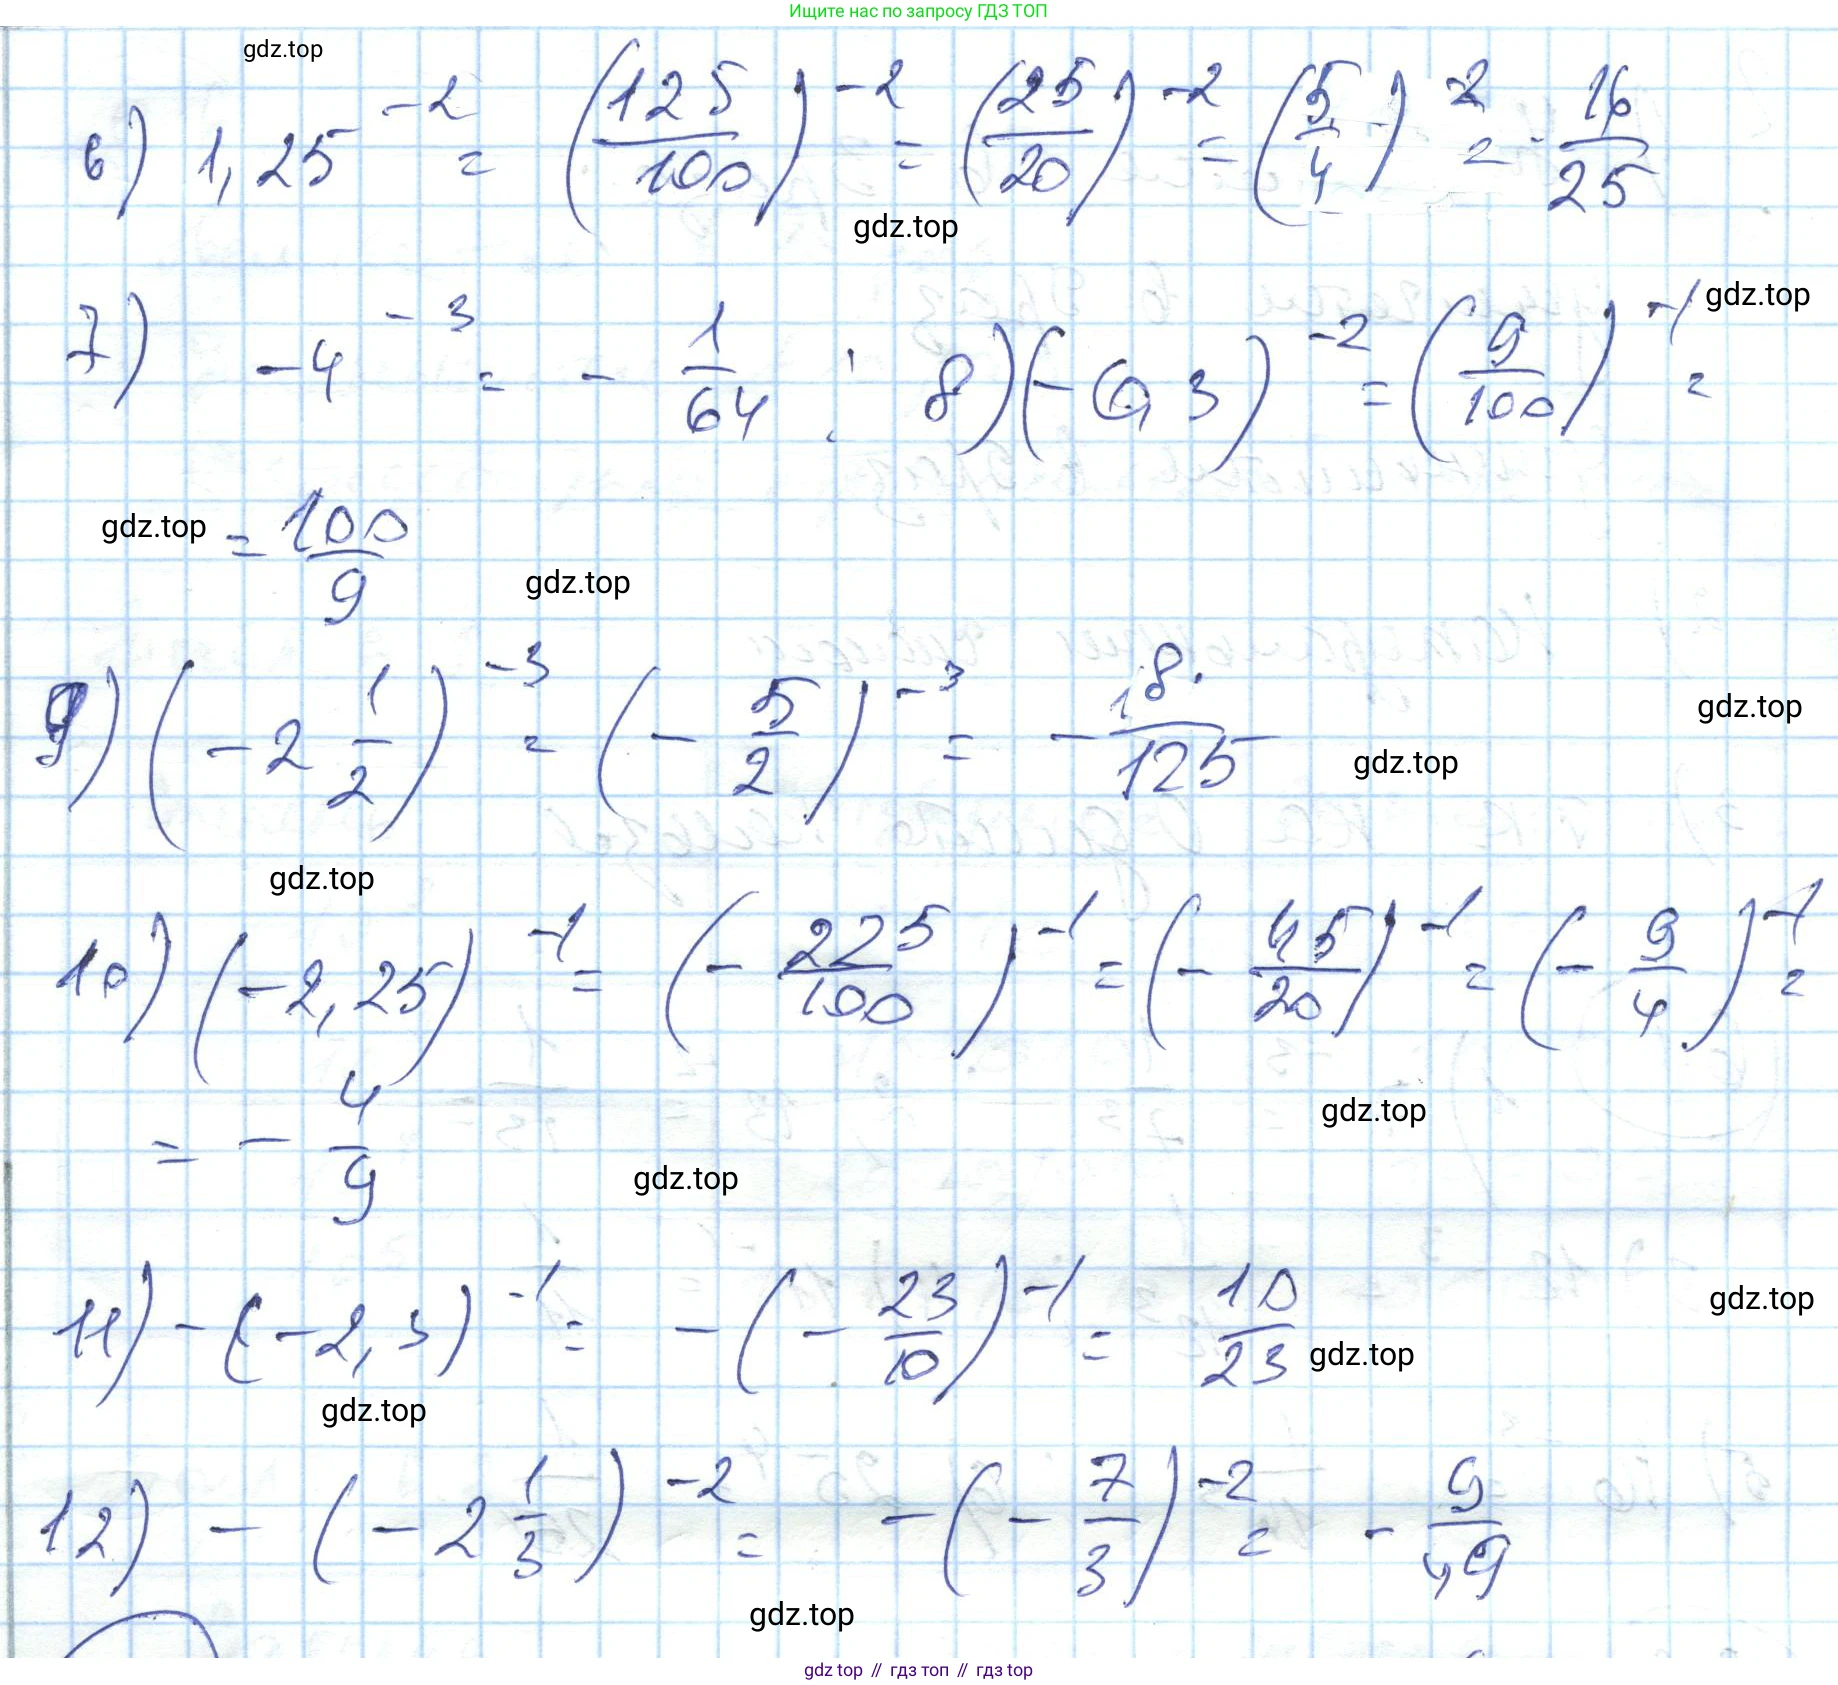 Ищите нас по запросу ГДЗ ТОП
gdz.top
6) 1,25^{-2} = (125/100)^{-2} = (25/20)^{-2} = (5/4)^{-2} = 16/25
gdz.top
7) -4^{-3} = - 1/64 ; 8) (-0,3)^{-2} = (9/100)^{-1} = gdz.top
gdz.top = 100/9
gdz.top
9) (-2 1/2)^{-3} = (- 5/2)^{-3} = - 8/125
gdz.top
gdz.top
gdz.top
10) (-2,25)^{-1} = (- 225/100)^{-1} = (- 45/20)^{-1} = (- 9/4)^{-1} =
gdz.top
= - 4/9
gdz.top
11) -(-2,3)^{-1} = -(- 23/10)^{-1} = 10/23
gdz.top
gdz.top
gdz.top
12) -(-2 1/3)^{-2} = -(- 7/3)^{-2} = - 9/49
gdz.top
gdz top // гдз топ // гдз top